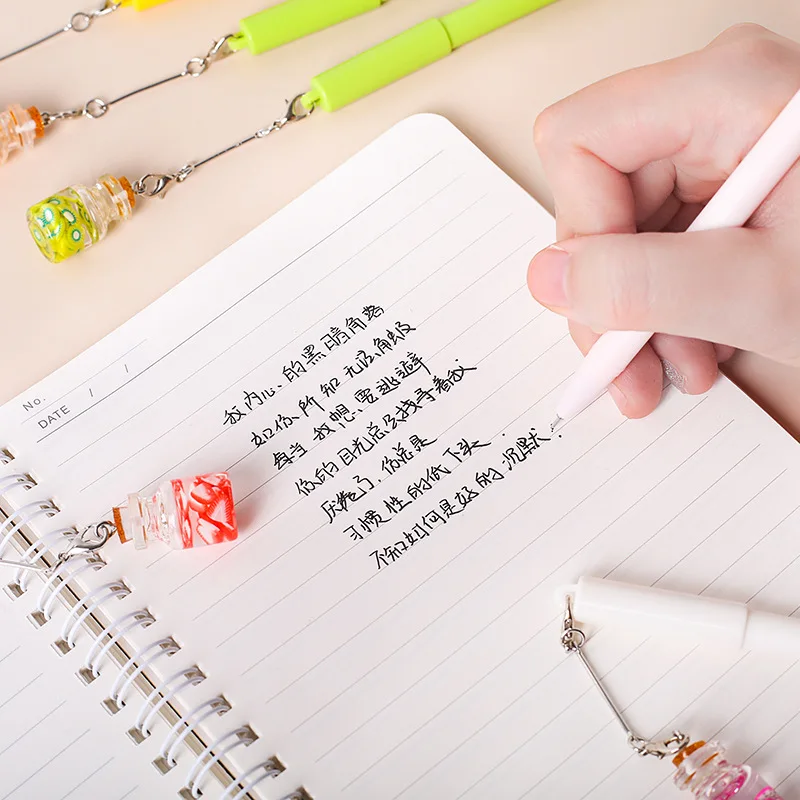 No.
DATE / /
我内心的黑暗角落
如你所知无容角般
每当我想要逃避
你的目光总会找寻着我
厌倦了,你总是
习惯性的低下头.
不知如何是好的沉默.